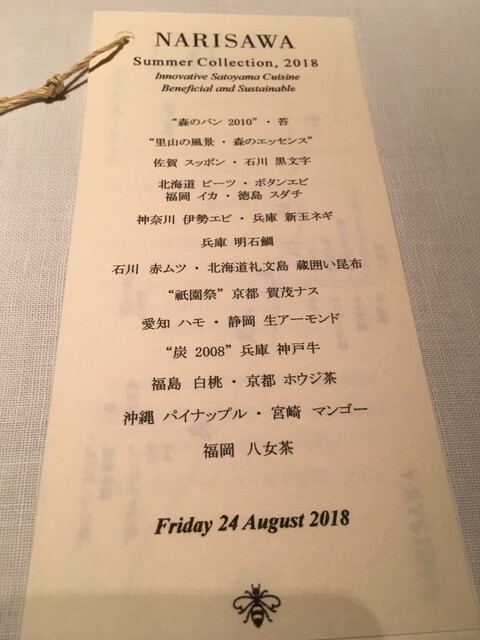 NARISAWA
Summer Collection, 2018
Innovative Satoyama Cuisine
Beneficial and Sustainable
“森のパン 2010”・苔
“里山の風景・森のエッセンス”
佐賀 スッポン・石川 黒文字
北海道 ビーツ・ボタンエビ
福岡 イカ・徳島 スダチ
神奈川 伊勢エビ・兵庫 新玉ネギ
兵庫 明石鯛
石川 赤ムツ・北海道礼文島 蔵囲い昆布
“祇園祭” 京都 賀茂ナス
愛知 ハモ・静岡 生アーモンド
“炭 2008” 兵庫 神戸牛
福島 白桃・京都 ホウジ茶
沖縄 パイナップル・宮崎 マンゴー
福岡 八女茶
Friday 24 August 2018